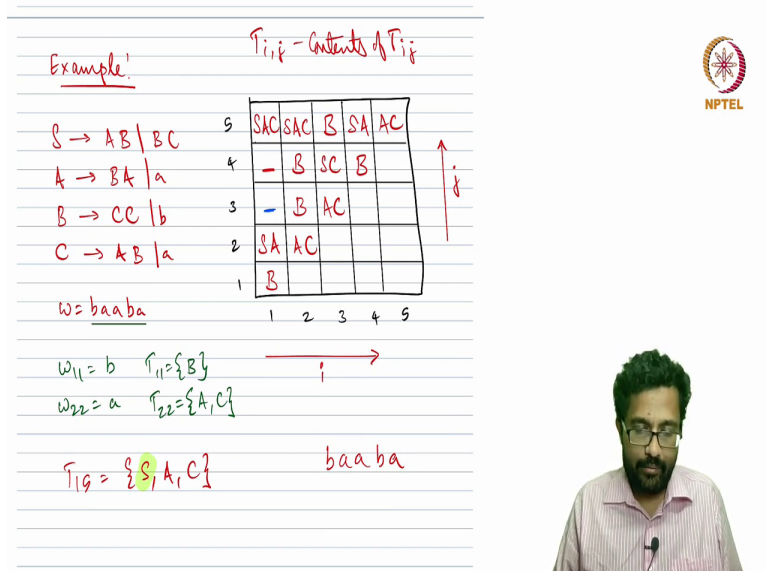 T i,j – Contents of T ij
Example!
S → AB | BC
A → BA | a
B → CC | b
C → AB | a
w = baaba
5 SAC SAC B SA AC
4 – B SC B
3 – B AC
2 SA AC
1 B
1 2 3 4 5
j
i
w11 = b T11 = {B}
w22 = a T22 = {A, C}
T15 = {S, A, C}
baaba
NPTEL